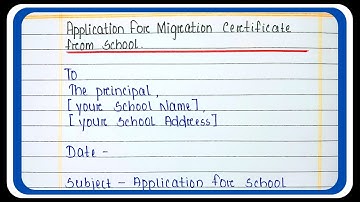 Application For Migration Certificate
from School.
To
The principal,
[ your School Name],
[ your School Address]
Date -
Subject - Application for School